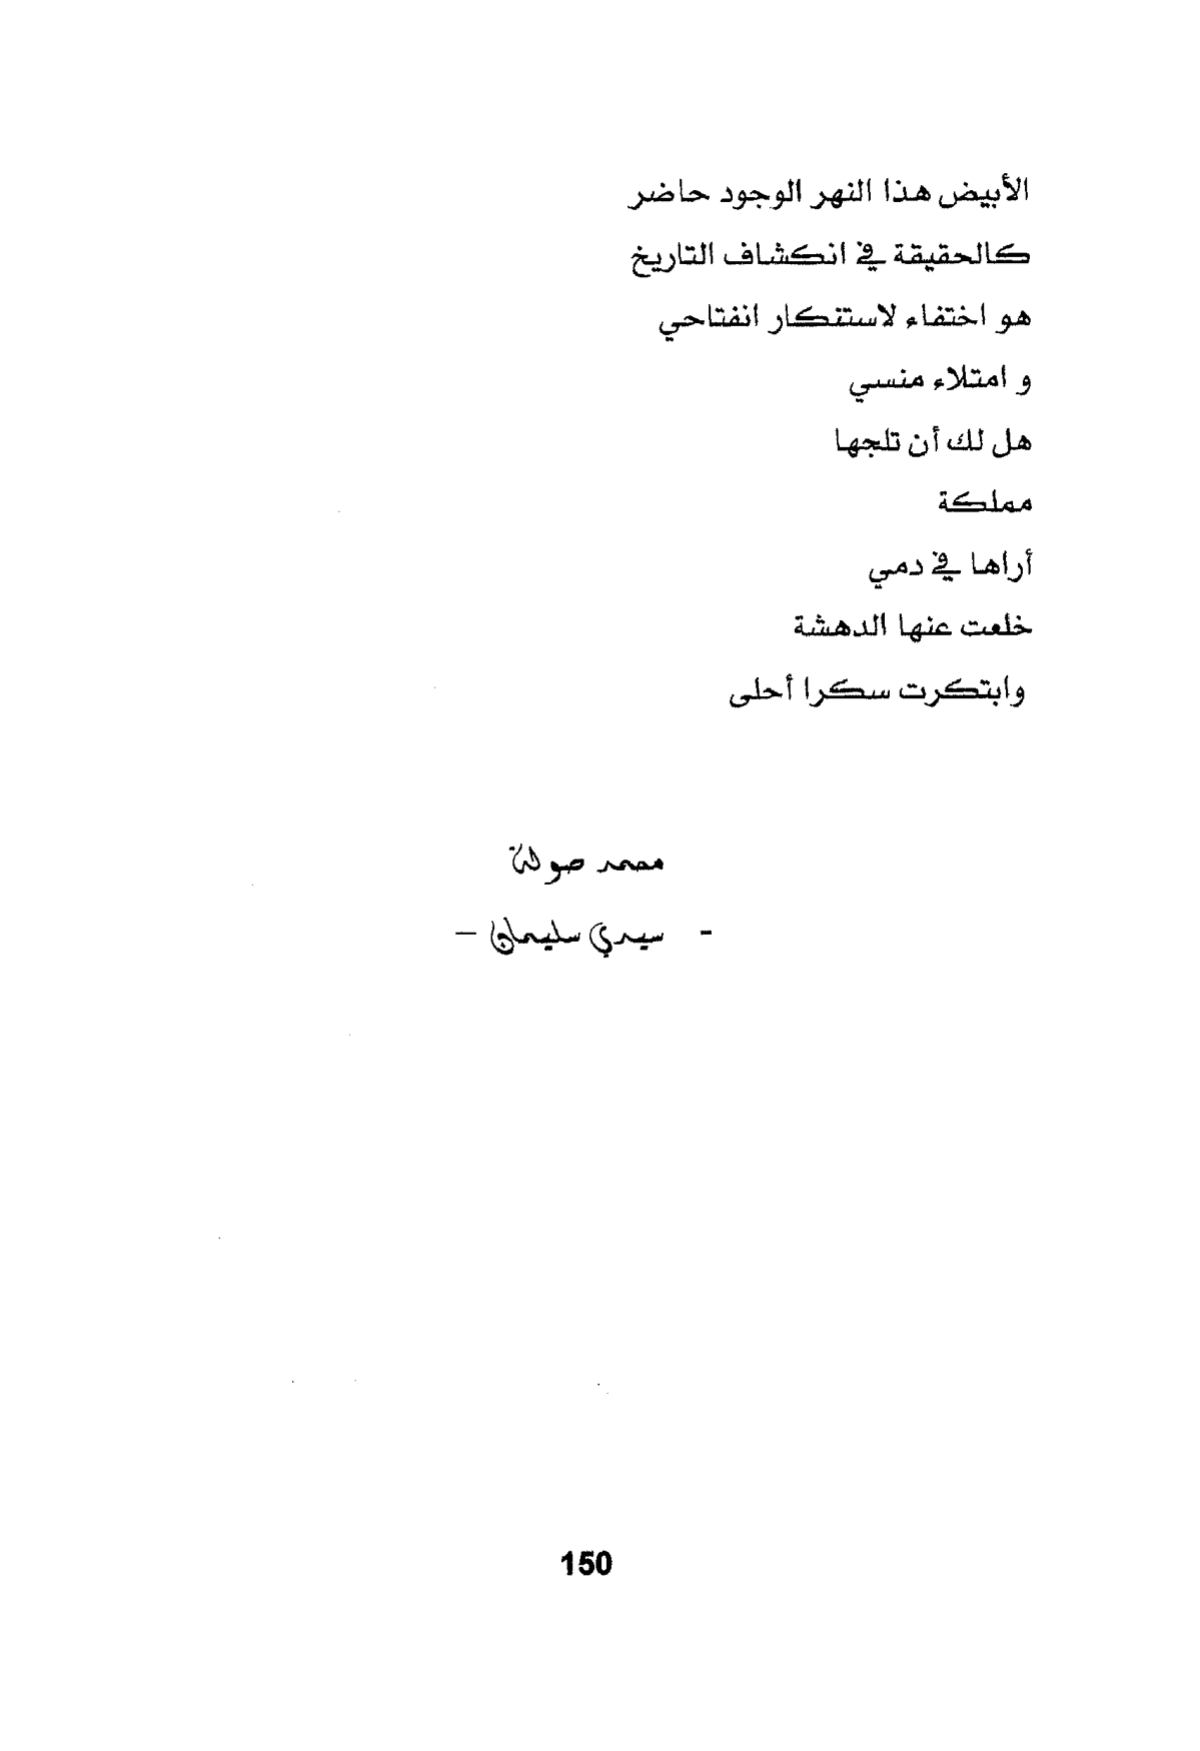 الأبيض هذا النهر الوجود حاضر
كالحقيقة في انكشاف التاريخ
هو اختفاء لاستنكار انفتاحي
و امتلاء منسي
هل لك أن تلجها
مملكة
أراها في دمي
خلعت عنها الدهشة
وابتكرت سكرا أحلى
محمد صولة
- سيدي سليمان –
150